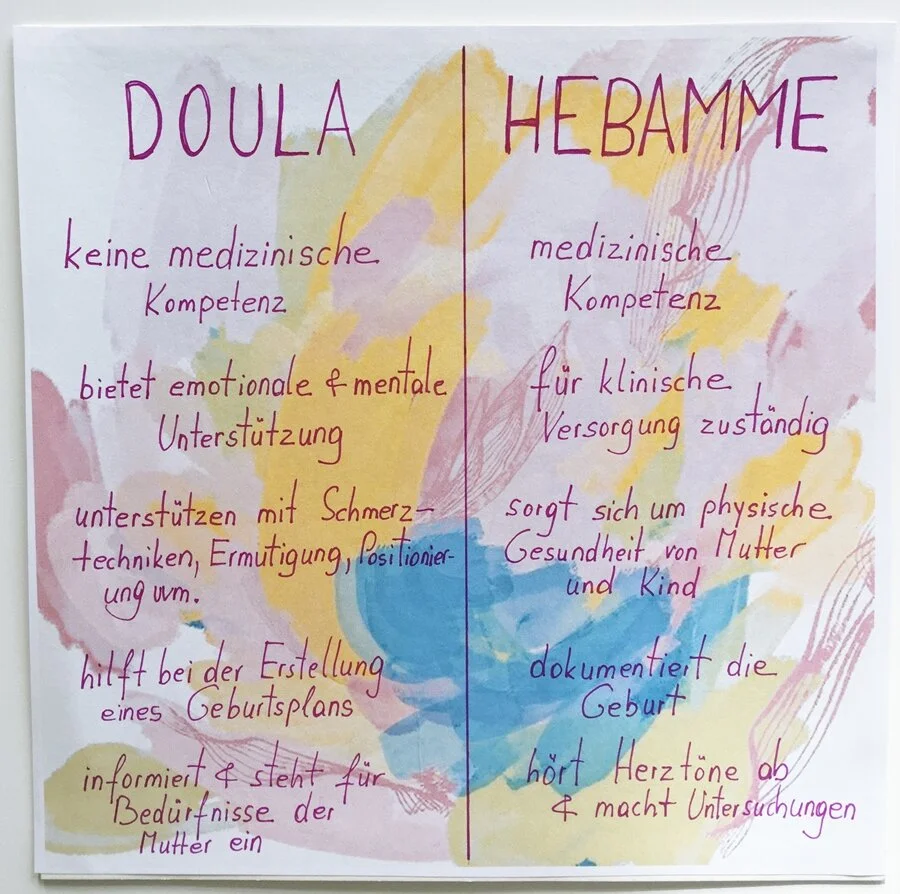 DOULA
keine medizinische
Kompetenz
bietet emotionale & mentale
Unterstützung
unterstützen mit Schmerz-
techniken, Ermutigung, Positionier-
ung uvm.
hilft bei der Erstellung
eines Geburtsplans
informiert & steht für
Bedürfnisse der
Mutter ein
HEBAMME
medizinische
Kompetenz
für klinische
Versorgung zuständig
sorgt sich um physische
Gesundheit von Mutter
und Kind
dokumentiert die
Geburt
hört Herztöne ab
& macht Untersuchungen